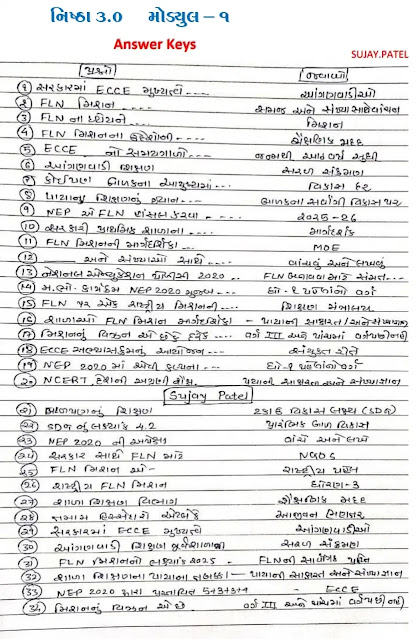 નિષ્ઠા 3.0 મોડ્યુલ – ૧
Answer Keys
SUJAY.PATEL
પ્રશ્નો જવાબો
① સરકારમાં ECCE મુખ્યત્વે.... આંગણવાડીઓ
2 FLN મિશન .... સમજ અને સંખ્યાજ્ઞાન
3 FLN ના .... મિશન
4 FLN મિશનના .... શૈક્ષણિક મદદ
5 ECCE નો સમયગાળો.... જન્મથી આઠ વર્ષ સુધી
6 આંગણવાડી શિક્ષણ સરળ સંક્રમણ
7 કોઈપણ બાળકના આયુષ્યમાં.. વિકાસ દર
8 પાયાના શિક્ષણનું ધ્યાન.... બાળકના સર્વાંગી વિકાસ પર
9 NEP એ FLN હાંસલ કરવા .... 2025-26
10 સરકારી પ્રાથમિક શાળાના.... માર્ગદર્શક
11 FLN મિશનની માર્ગદર્શિકા.. MOE
12 ____ અને સંખ્યાઓ સાથે.. વાંચવું અને લખવું
13 નેશનલ એજ્યુકેશન પોલીસી 2020.. FLN
14 મ.ભો. કાર્યક્રમ NEP 2020 મુજબ... ધો-૧ પહેલાંનો વર્ગ
15 FLN પર એક રાષ્ટ્રીય મિશનની.... શિક્ષણ મંત્રાલય
16 શાળાઓ FLN મિશન માર્ગદર્શિકા - પાયાની સાક્ષરતા/અને સંખ્યાજ્ઞાન
17 મિશનનું વિઝન એ છે કે દરેક.. વર્ગ III અને પાંચમાં વર્ગ પછી નહીં
18 ECCE અભ્યાસક્રમનું આયોજન - સંયુક્ત રીતે
19 NEP 2020 માં એવી કલ્પના.. ધો-૧ પહેલાંનો વર્ગ
20 NCERT પાયાની સાક્ષરતા અને સંખ્યાજ્ઞાન
Sujay Patel
21 શિક્ષણ ટકાઉ વિકાસ લક્ષ્ય (SDG)
22 SDG નું લક્ષ્યાંક 4.2 પ્રારંભિક બાળ વિકાસ
23 NEP 2020 ની અપેક્ષા વાંચે અને લખે
24 સરકાર સાથે FLN માટે
25 FLN મિશન એ- રાષ્ટ્રીય પહેલ
26 રાષ્ટ્રીય FLN મિશન ધોરણ-3
27 શાળા શિક્ષણ વિભાગ શૈક્ષણિક મદદ
28 તમામ આજીવન શિક્ષણકાર
29 સરકારમાં ECCE મુખ્યત્વે આંગણવાડીઓ
30 આંગણવાડી શિક્ષણ પૂર્વશાળાની સરળ સંક્રમણ
31 FLN મિશનનો લક્ષ્યાંક 2025 - FLNની સાર્વત્રિક પ્રાપ્તિ
32 શાળા શિક્ષણના પાયાના તબક્કા - પાયાની સાક્ષરતા અને સંખ્યાજ્ઞાન
33 NEP 2020 દ્વારા પ્રસ્તાવિત 5+3+3+4 - ECCE
34 મિશનનું વિઝન એ છે વર્ગ III અને પાંચમાં વર્ગ પછી નહીં